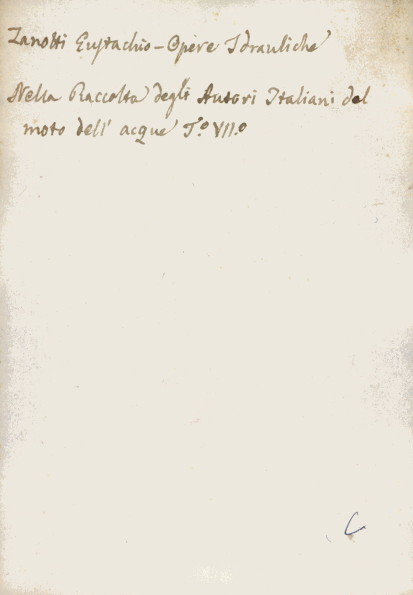 Zanotti Eustachio - Opere Idrauliche
Nella Raccolta degli Autori Italiani del
moto dell' acque T.º VII.º
C